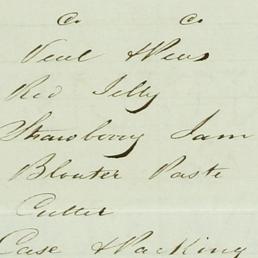 C. C.
Veal & Peas
Red Jelly
Strawberry Jam
Bloater Paste
Cutter
Case & Packing